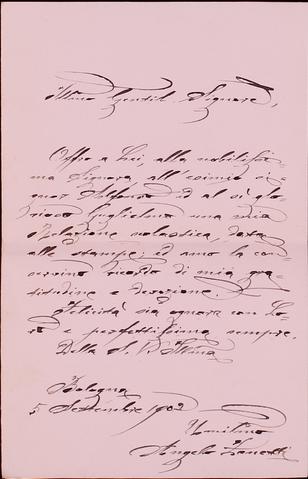 Illmo Gentil Signore,
Offro a Lei, alla nobilissi-
ma Signora all'esimio si-
gnor Alfonso ed al sì glo-
rioso Guglielmo una mia
Relazione scolastica, data
alle stampe; ed amo la con-
servino ricordo di mia gra-
titudine e devozione.
Felicità sia ognora con Lo-
ro e perfettissima sempre.
Della S. V. Illma
Bologna
5 Settembre 1902
Umilmo
Angelo Zanetti